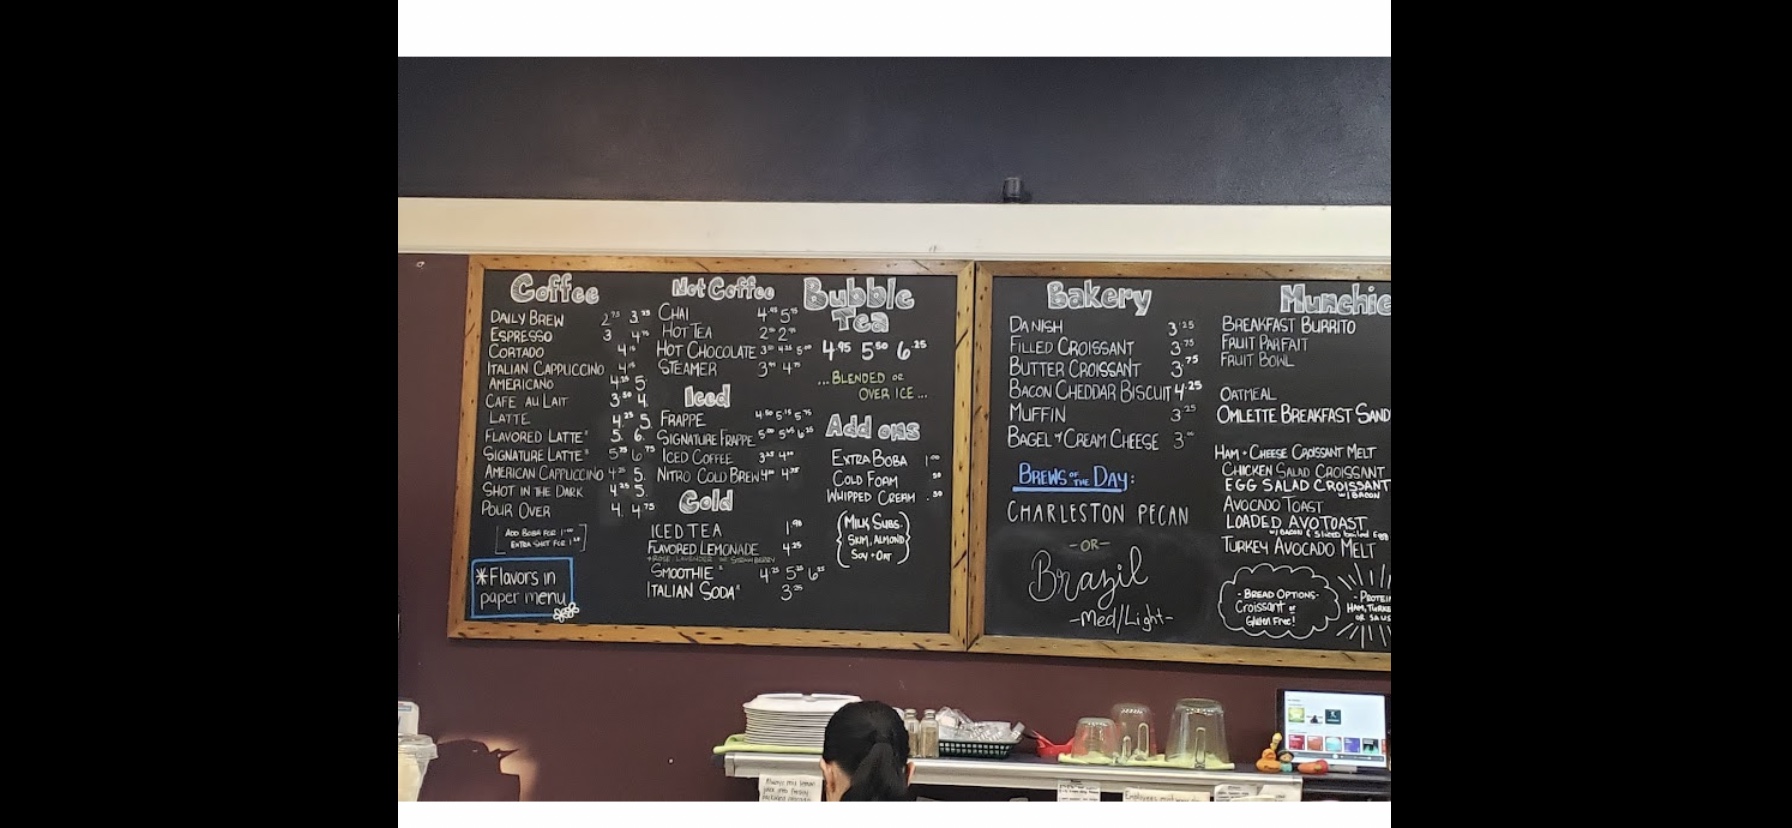 Coffee
DAILY BREW 2.75 3.25
ESPRESSO 3. 4.75
CORTADO 4.15
ITALIAN CAPPUCCINO 4.15
AMERICANO 4.25 5.
CAFE AU LAIT 3.50 4.
LATTE 4.25 5.
FLAVORED LATTE* 5. 6.
SIGNATURE LATTE* 5.75 6.75
AMERICAN CAPPUCCINO 4.25 5.
SHOT IN THE DARK 4.25 5.
POUR OVER 4. 4.75
ADD BOBA FOR 1.00
EXTRA SHOT FOR
*Flavors in
paper menu
Not Coffee
CHAI 4.95 5.
HOT TEA 2. 2.
HOT CHOCOLATE 3. 4.25 5.00
STEAMER 3. 4.
Iced
FRAPPE 4.50 5.15 5.75
SIGNATURE FRAPPE 5.00 5.65 6.25
ICED COFFEE 3.25 4.00
NITRO COLD BREW 4.00 4.75
Cold
ICED TEA 1.90
FLAVORED LEMONADE 4.25
ROSE LAVENDER OR STRAWBERRY
SMOOTHIE* 4.25 5.25 6.25
ITALIAN SODA* 3.25
Bubble
Tea
4.95 5.50 6.25
...BLENDED OR
OVER ICE...
Add ons
EXTRA BOBA 1.00
COLD FOAM .50
WHIPPED CREAM .50
MILK SUBS.
SKIM, ALMOND
SOY + OAT
Bakery
DANISH 3.25
FILLED CROISSANT 3.75
BUTTER CROISSANT 3.75
BACON CHEDDAR BISCUIT 4.25
MUFFIN 3.25
BAGEL + CREAM CHEESE 3.
BREWS OF THE DAY:
CHARLESTON PECAN
-OR-
Brazil
-Med/Light-
Munchie
BREAKFAST BURRITO
FRUIT PARFAIT
FRUIT BOWL
OATMEAL
OMLETTE BREAKFAST SAND
HAM + CHEESE CROISSANT MELT
CHICKEN SALAD CROISSANT
EGG SALAD CROISSANT
w/BACON
AVOCADO TOAST
LOADED AVO TOAST
w/BACON & Sliced boiled Egg
TURKEY AVOCADO MELT
-BREAD OPTIONS-
Croissant or
Gluten Free!
-PROTEIN
HAM, TURKE
OR SAUS